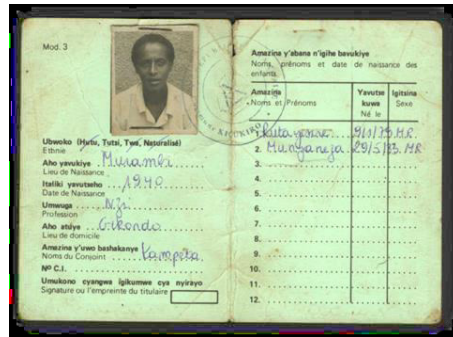 Mod. 3
Ubwoko (Hutu, Tutsi, Twa, Naturalisé)
Ethnie
Aho yavukiye Murambi
Lieu de Naissance
Italiki yavutseho 1940
Date de Naissance
Umwuga
Profession
Aho atuye Gikondo
Lieu de domicile
Amazina y'uwo bashakanye
Noms du Conjoint Kampeta
Nº C.I.
Umukono cyangwa igikumwe cya nyirayo
Signature ou l'empreinte du titulaire
Amazina y'abana n'igihe bavukiye
Noms, prénoms et date de naissance des
enfants
Amazina Yavutse Igitsina
Noms et Prénoms kuwa Sexe
Né le
9/1/79 M.R
2. Munyaneza 29/5/83 MR
3.
4.
5.
6.
7.
8.
9.
10.
11.
12.
KICUKIRO